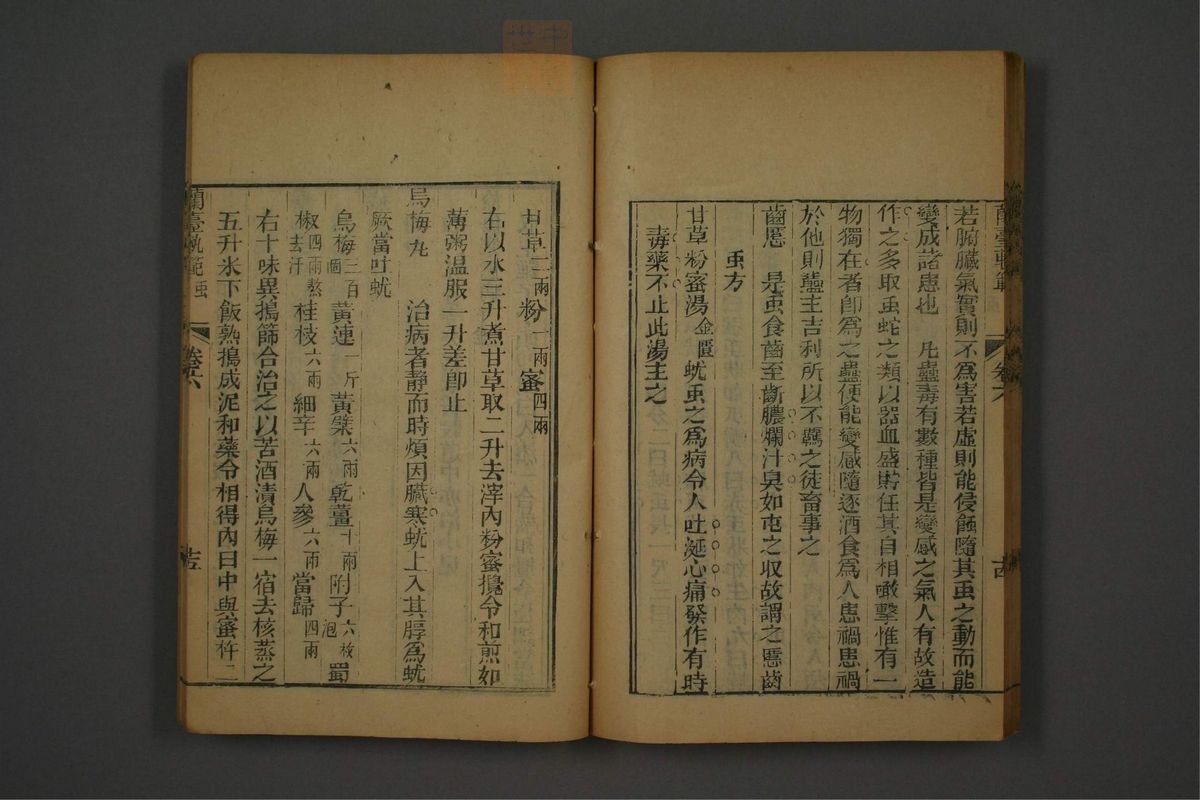 蘭臺軌範 卷六 古
若腑臟氣實則不為害若虛則能侵蝕隨其虫之動而能
變成諸患也 凡蠱毒有數種皆是變惑之氣人有故造
作之多取虫蛇之類以器皿盛貯任其自相噉擊惟有一
物獨在者卽為之蠱便能變惑隨逐酒食為人患禍患禍
於他則蠱主吉利所以不羈之徒畜事之
齒䘌 是虫食齒至齗膿爛汁臭如
虫方
甘草粉蜜湯 金匱 蚘虫之為病令人吐涎心痛發作有時
毒藥不止此湯主之
甘草二兩 粉一兩 蜜四兩
右以水三升煮甘草取二升去滓內粉蜜攪令和煎如
薄粥溫服一升差卽止
烏梅丸 治病者靜而時煩因臟寒蚘上入其膈為蚘
厥當吐蚘
烏梅三百個 黃連一斤 黃檗六兩 乾薑十兩 附子六枚泡 蜀
椒四兩熬去汗 桂枝六兩 細辛六兩 人參六兩 當歸四兩
右十味異搗篩合治之以苦酒漬烏梅一宿去核蒸之
五升米下飯熟搗成泥和藥令相得內臼中與蜜杵二
蘭臺軌範 虫 卷六 圭